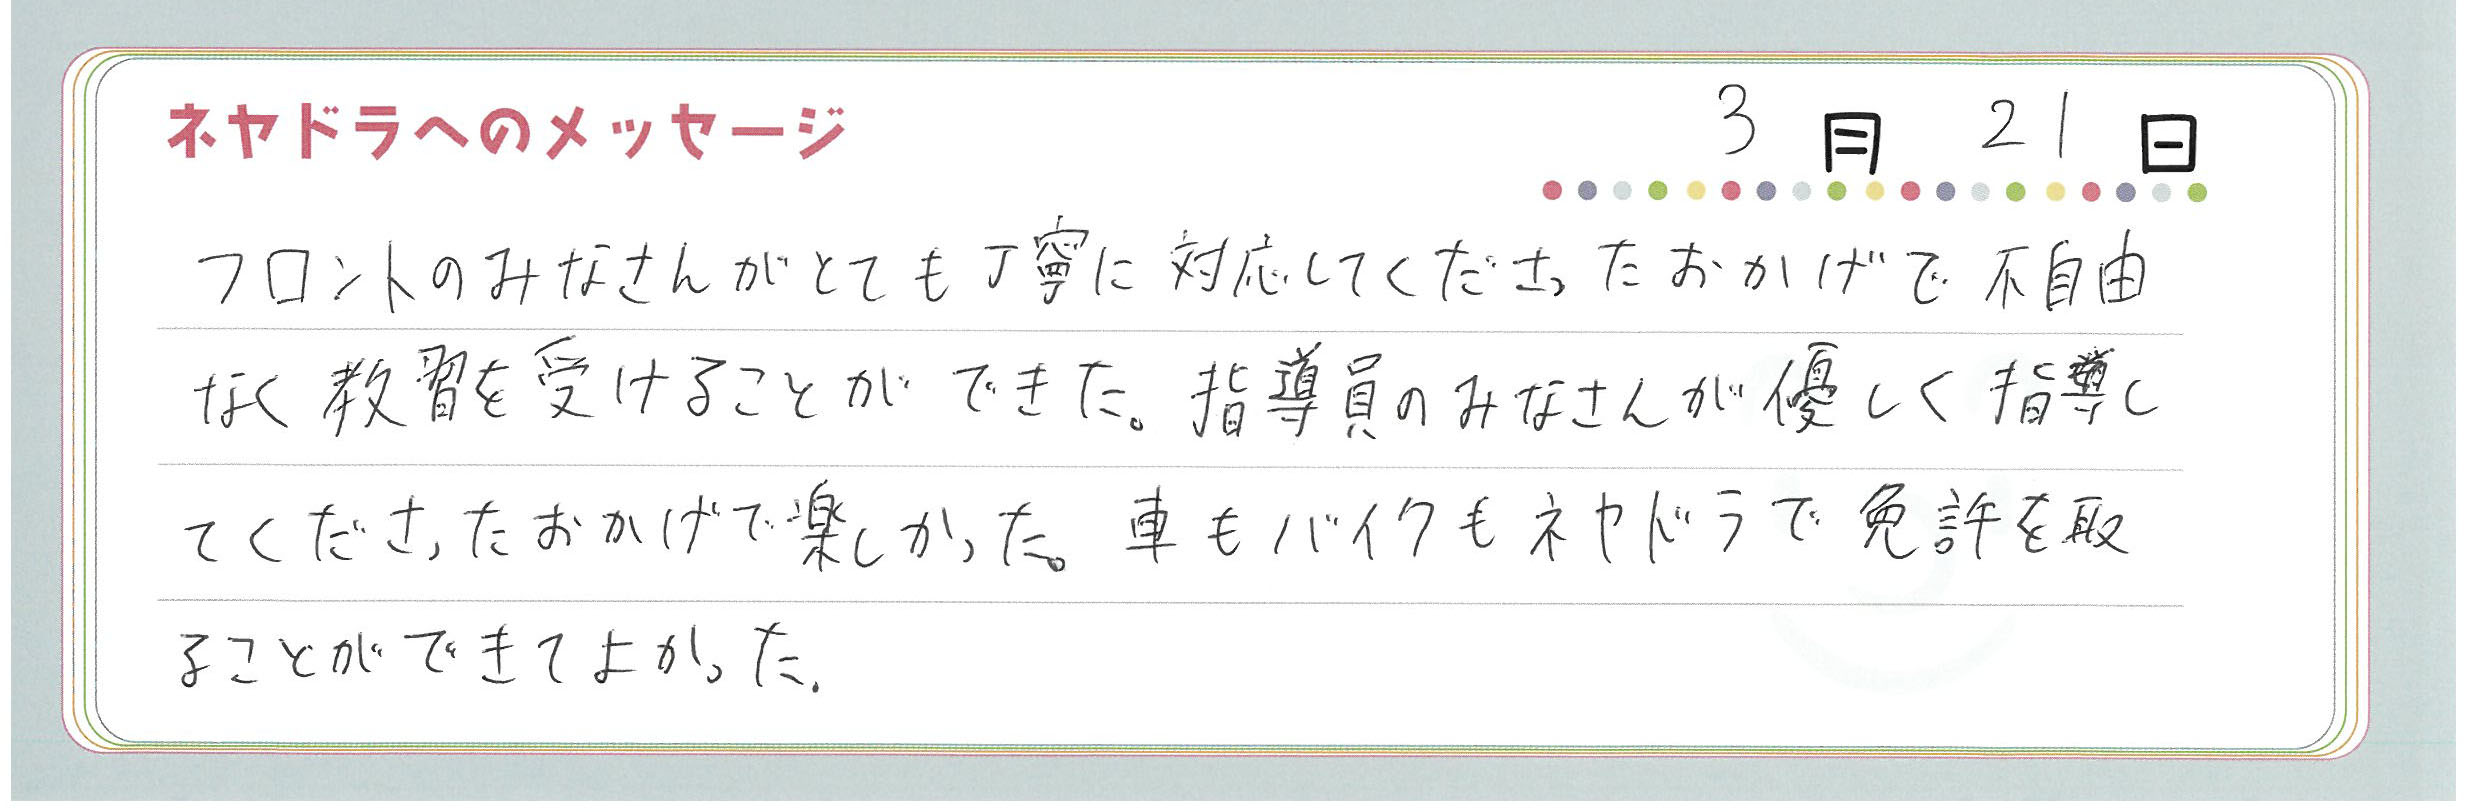 ネヤドラへのメッセージ
3月21日
フロントのみなさんがとても丁寧に対応してくださったおかげで不自由
なく教習を受けることができた。指導員のみなさんが優しく指導し
てくださったおかげで楽しかった。車もバイクもネヤドラで免許を取
ることができてよかった.